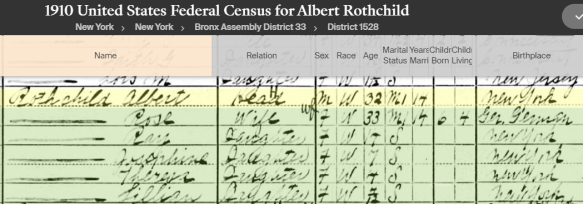 1910 United States Federal Census for Albert Rothchild
New York > New York > Bronx Assembly District 33 > District 1528
Name Relation Sex Race Age Marital Status Years Marri Child Born Child Living Birthplace
Daughter W S New Jersey
Rothchild Albert Head M W 32 M1 14 New York
Wife F W 33 M1 14 6 4 Ger. German
Daughter F W S New York
Josephine Daughter F W S New York
Theresa Daughter F W S New York
Lillian Daughter F W S New York